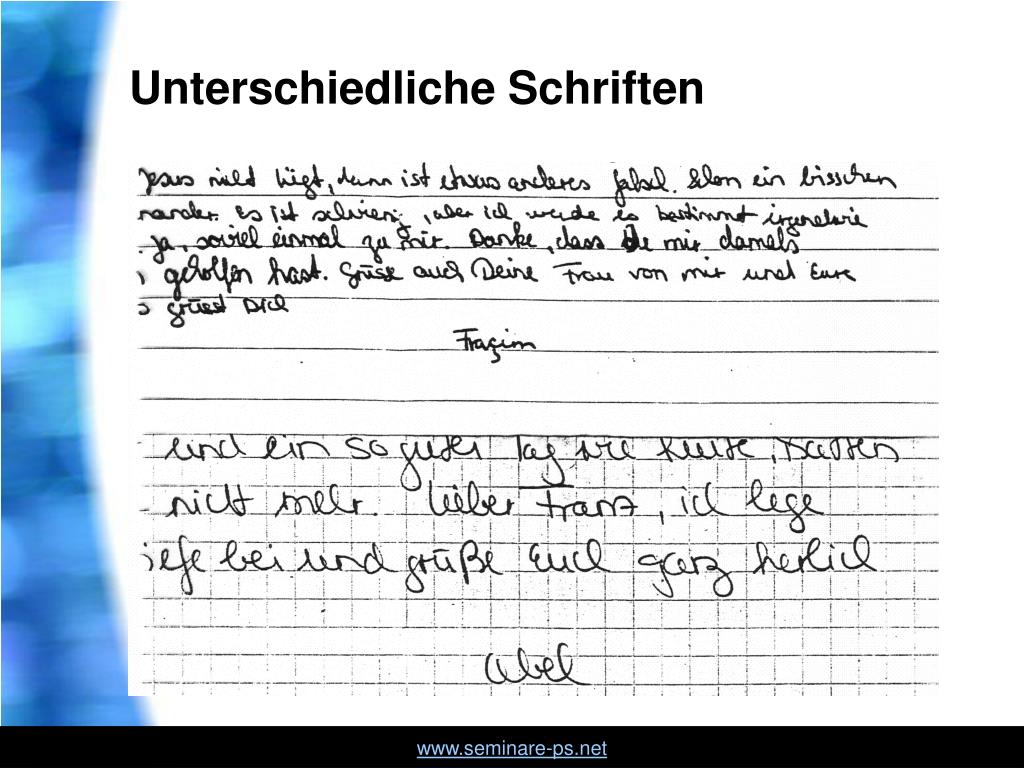 Unterschiedliche Schriften
Jesus nicht lügt, dann ist etwas anderes falsch. Schon ein bisschen
nander. Es ist schwierig, aber ich werde es bestimmt irgendwie
ja, soviel einmal zu mir. Danke, dass Du mir damals
geholfen hast. Grüsse auch Deine Frau von mir und Eure
grüsst Dich
Fraçim
und ein so guter Tag wie heute, hatten
nicht mehr. Lieber Franz, ich lege
iefe bei und grüße Euch ganz herlich
Abel
www.seminare-ps.net